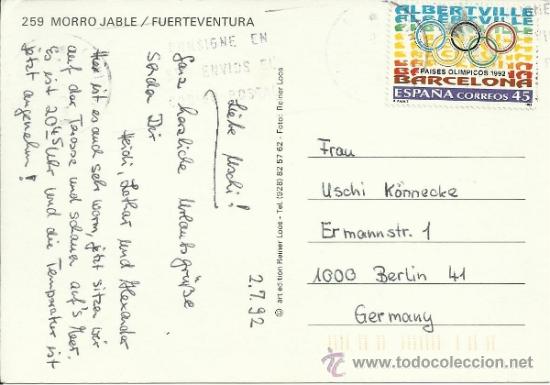 259 MORRO JABLE / FUERTEVENTURA
CONSIGNE EN
ENVIOS
ALBERTVILLE
PAISES OLIMPICOS 1992
BARCELONA
ESPAÑA CORREOS 45
2.7.92
Liebe Uschi!
Ganz herzliche Urlaubsgrüße
senden Dir
Heidi, Lothar und Alexander
Hier ist es auch sehr warm, jetzt sitzen wir
auf der Terasse und schauen auf's Meer.
Es ist 20.45 Uhr und die Temperatur ist
jetzt angenehm!
© art edition Reiner Loos - Tel. (928) 82 57 62 - Foto: Reiner Loos
Frau
Uschi Könnecke
Ermannstr. 1
1000 Berlin 41
Germany
www.todocoleccion.net